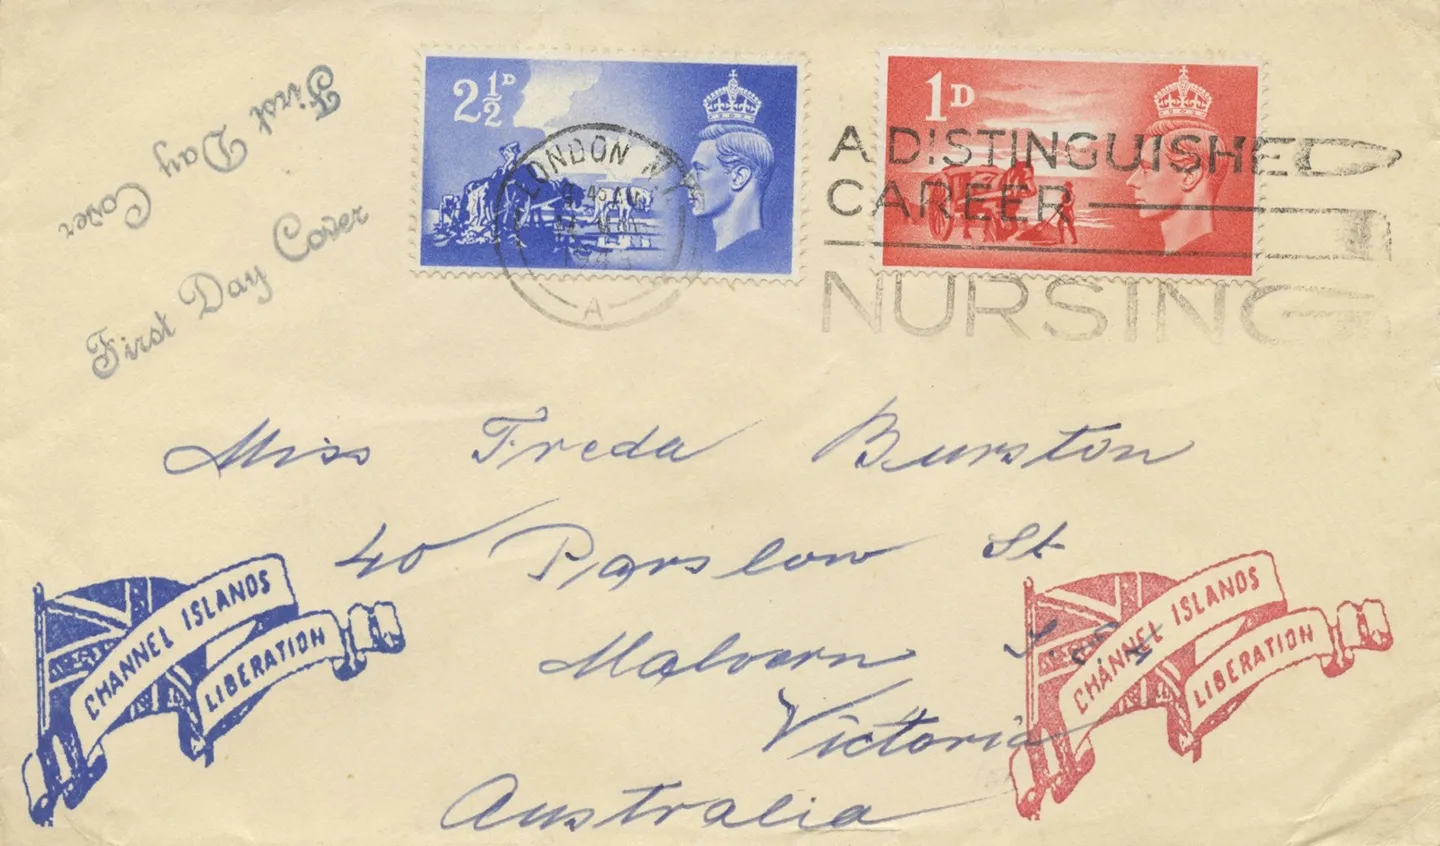 First Day Cover
First Day Cover
2½D
1D
LONDON N.
A
A DISTINGUISHED
CAREER
NURSING
Miss Freda Burston
40 Parslow St
Malvern
Victoria
Australia
CHANNEL ISLANDS
LIBERATION
CHANNEL ISLANDS
LIBERATION